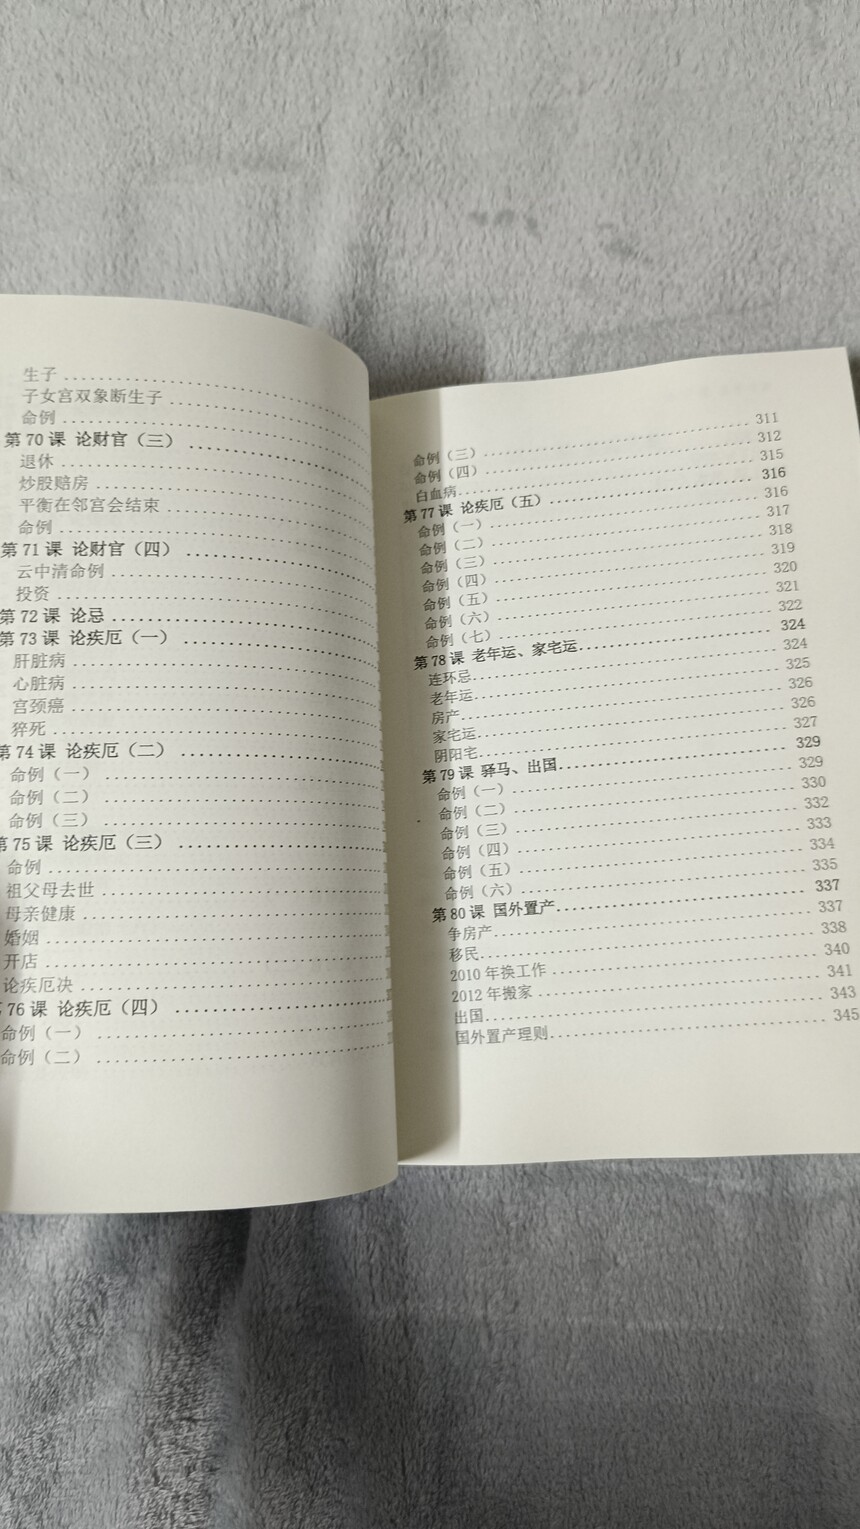 生子
子女宫双象断生子
命例
第 70 课 论财官（三）
退休
炒股赔房
平衡在邻宫会结束
命例
第 71 课 论财官（四）
云中清命例
投资
第 72 课 论忌
第 73 课 论疾厄（一）
肝脏病
心脏病
宫颈癌
猝死
第 74 课 论疾厄（二）
命例（一）
命例（二）
命例（三）
第 75 课 论疾厄（三）
命例
祖父母去世
母亲健康
婚姻
开店
论疾厄决
76 课 论疾厄（四）
命例（一）
命例（二）
命例（三）311
命例（四）312
白血病 315
第 77 课 论疾厄（五）316
命例（一）316
命例（二）317
命例（三）318
命例（四）319
命例（五）320
命例（六）321
命例（七）322
第 78 课 老年运、家宅运 324
连环忌 324
老年运 325
房产 326
家宅运 326
阴阳宅 327
第 79 课 驿马、出国 329
命例（一）329
命例（二）330
命例（三）332
命例（四）333
命例（五）334
命例（六）335
第 80 课 国外置产 337
争房产 337
移民 338
2010 年换工作 340
2012 年搬家 341
出国 343
国外置产理则 345